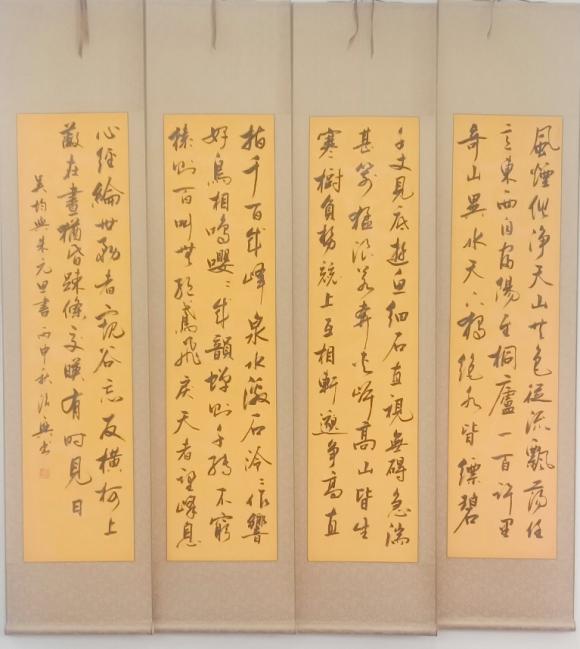 風煙俱淨天山共色從流飄蕩任
意東西自富陽至桐廬一百許里
奇山異水天下獨絕水皆縹碧
千丈見底遊魚細石直視無礙急湍
甚箭猛浪若奔夹岸高山皆生
寒樹負勢競上互相軒邈爭高直
指千百成峰泉水激石泠〻作響
好鳥相鳴嚶〻成韻蟬則千轉不窮
猿則百叫無絕鳶飛戾天者望峰息
心經綸世務者窺谷忘反橫柯上
蔽在晝猶昏踈條交暎有時見日
吳均與朱元思書 丙申秋